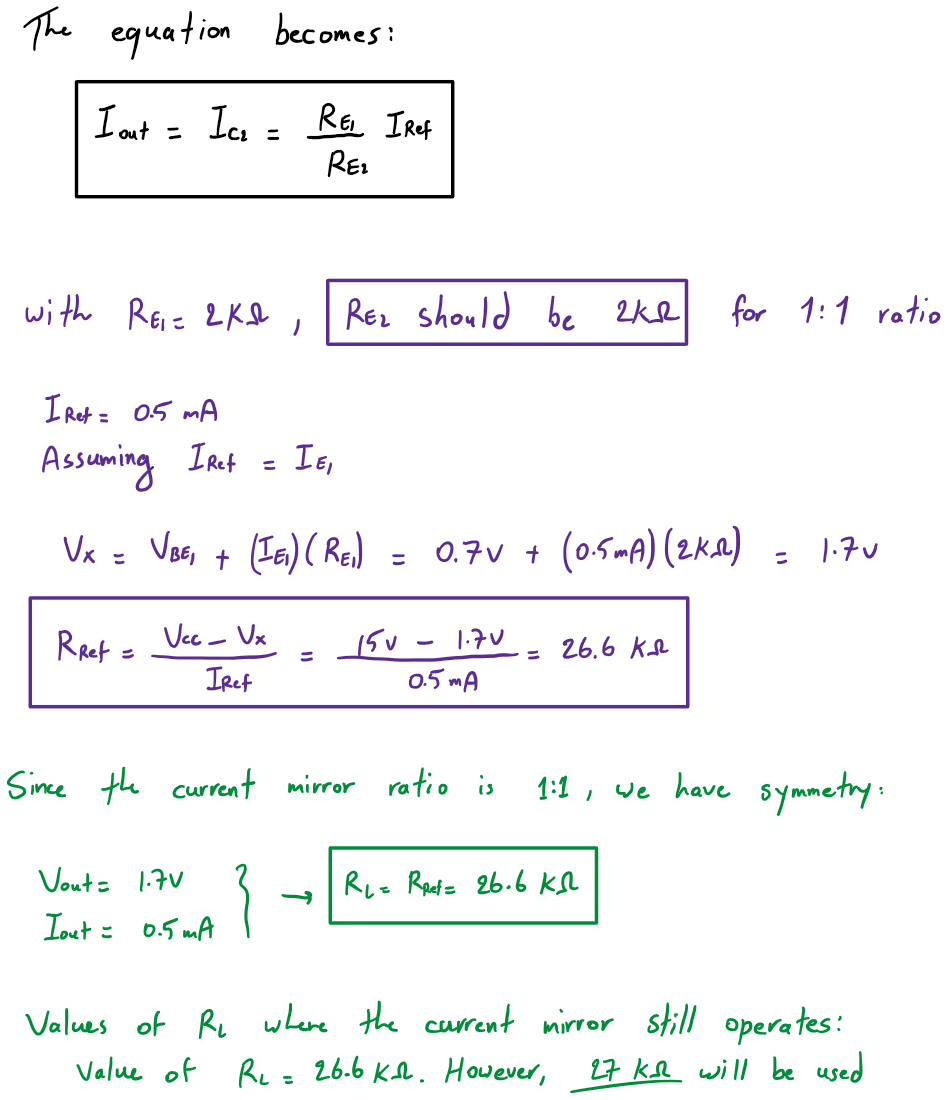 The equation becomes:
I out = I C2 = R E1 / R E2 I Ref
with R E1 = 2KΩ , R E2 should be 2KΩ for 1:1 ratio
I Ref = 0.5 mA
Assuming I Ref = I E1
Vx = V BE1 + (I E1)(R E1) = 0.7v + (0.5mA)(2KΩ) = 1.7v
R Ref = Vcc - Vx / I Ref = 15v - 1.7v / 0.5mA = 26.6 KΩ
Since the current mirror ratio is 1:1 , we have symmetry:
Vout = 1.7V
Iout = 0.5mA } → R L = R Ref = 26.6 KΩ
Values of R L where the current mirror still operates:
Value of R L = 26.6 KΩ. However, 27 KΩ will be used